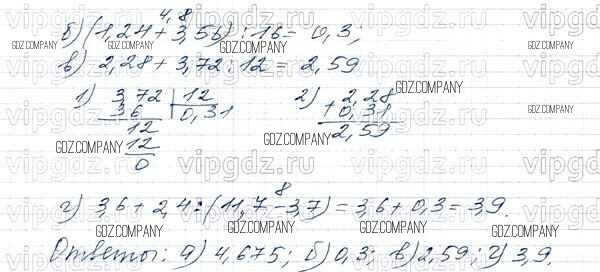 4,8
б) (1,24 + 3,56) : 16 = 0,3;
в) 2,28 + 3,72 : 12 = 2,59
1) 3,72 | 12
36 | 0,31
12
12
0
2) 2,28
+ 0,31
2,59
8
г) 3,6 + 2,4 : (11,7 - 3,7) = 3,6 + 0,3 = 3,9.
Ответы: а) 4,675; б) 0,3; в) 2,59; г) 3,9.
GDZ.COMPANY
GDZ.COMPANY
GDZ.COMPANY
GDZ.COMPANY
GDZ.COMPANY
GDZ.COMPANY
GDZ.COMPANY
GDZ.COMPANY
GDZ.COMPANY
GDZ.COMPANY
GDZ.COMPANY
vipgdz.ru
vipgdz.ru
vipgdz.ru
vipgdz.ru